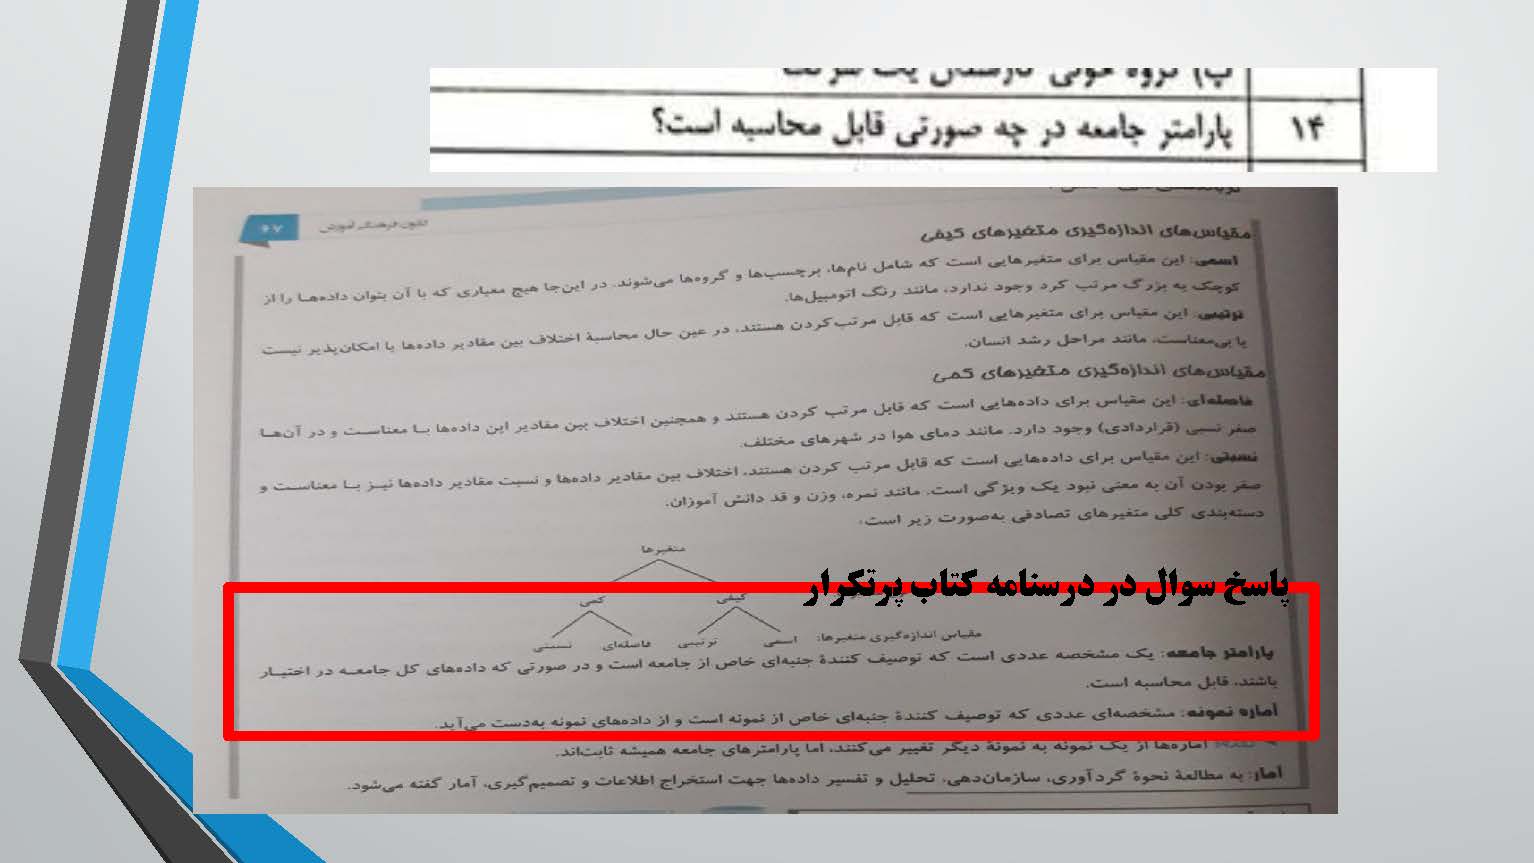 پ) گروه خونی کارمندان یک شرکت
۱۴ پارامتر جامعه در چه صورتی قابل محاسبه است؟
۶۷ کانون فرهنگی آموزش
مقیاس‌های اندازه‌گیری متغیرهای کیفی
اسمی: این مقیاس برای متغیرهایی است که شامل نام‌ها، برچسب‌ها و گروه‌ها می‌شوند. در این‌جا هیچ معیاری که با آن بتوان داده‌هـا را از
کوچک به بزرگ مرتب کرد وجود ندارد، مانند رنگ اتومبیل‌ها.
ترتیبی: این مقیاس برای متغیرهایی است که قابل مرتب‌کردن هستند، در عین حال محاسبهٔ اختلاف بین مقادیر داده‌ها یا امکان‌پذیر نیست
یا بی‌معناست، مانند مراحل رشد انسان.
مقیاس‌های اندازه‌گیری متغیرهای کمی
فاصله‌ای: این مقیاس برای داده‌هایی است که قابل مرتب کردن هستند و همچنین اختلاف بین مقادیر این داده‌ها بـا معناسـت و در آن‌هـا
صفر نسبی (قراردادی) وجود دارد. مانند دمای هوا در شهرهای مختلف.
نسبتی: این مقیاس برای داده‌هایی است که قابل مرتب کردن هستند، اختلاف بین مقادیر داده‌ها و نسبت مقادیر داده‌ها نیـز بـا معناسـت و
صفر بودن آن به معنی نبود یک ویژگی است. مانند نمره، وزن و قد دانش آموزان.
دسته‌بندی کلی متغیرهای تصادفی به‌صورت زیر است:
متغیرها
پاسخ سوال در درسنامه کتاب پرتکرار
کیفی کمی
مقیاس اندازه‌گیری متغیرها: اسمی ترتیبی فاصله‌ای نسبتی
پارامتر جامعه: یک مشخصه عددی است که توصیف کنندهٔ جنبه‌ای خاص از جامعه است و در صورتی که داده‌های کل جامعـه در اختیـار
باشند، قابل محاسبه است.
آماره نمونه: مشخصه‌ای عددی که توصیف کنندهٔ جنبه‌ای خاص از نمونه است و از داده‌های نمونه به‌دست می‌آید.
آماره‌ها از یک نمونه به نمونهٔ دیگر تغییر می‌کنند، اما پارامترهای جامعه همیشه ثابت‌اند.
آمار: به مطالعهٔ نحوهٔ گردآوری، سازمان‌دهی، تحلیل و تفسیر داده‌ها جهت استخراج اطلاعات و تصمیم‌گیری، آمار گفته می‌شود.